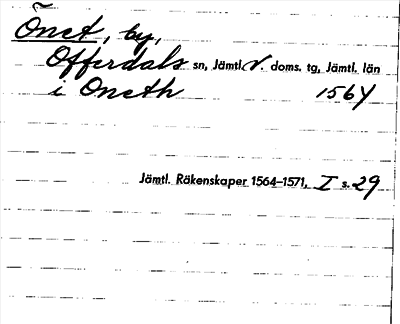 Önet, by,
Offerdals sn, Jämtl. V. doms. tg, Jämtl. län
i Oneth 1564
Jämtl. Räkenskaper 1564–1571, I s. 29